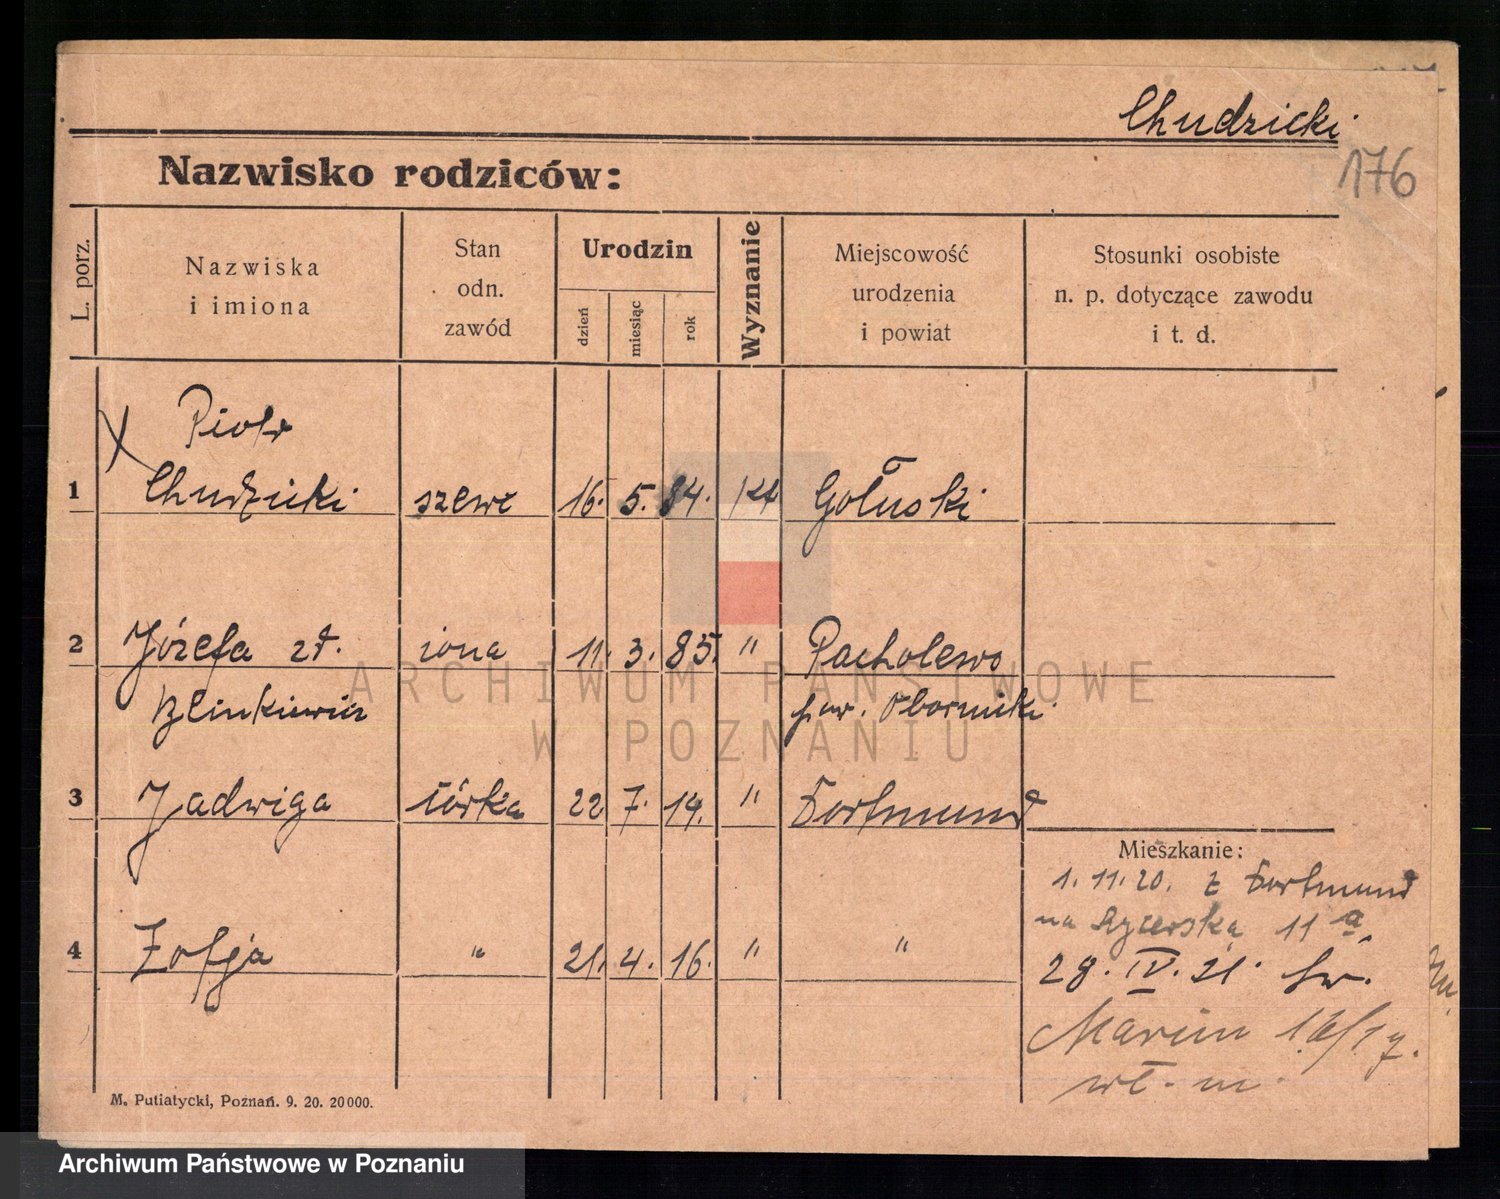 Chudzicki
176
Nazwisko rodziców:
L. porz.
Nazwiska
i imiona
Stan
odn.
zawód
Urodzin
dzień
miesiąc
rok
Wyznanie
Miejscowość
urodzenia
i powiat
Stosunki osobiste
n. p. dotyczące zawodu
i t. d.
Piotr
1 Chudzicki szewc 16. 5. 84. kt Gołuski
2 Józefa zd. żona 11. 3. 85. " Pacholewo
pow. Oborniki
3 Jadwiga córka 22 7. 14. " Dortmund
Mieszkanie:
1.11.20. z Dortmund
na Rycerska 11 a
4 Zofja " 21. 4. 16. " "
28. IV. 21. św.
Marcin
wł. m.
M. Putiatycki, Poznań. 9. 20. 20000.
ARCHIWUM PAŃSTWOWE
W POZNANIU
Archiwum Państwowe w Poznaniu